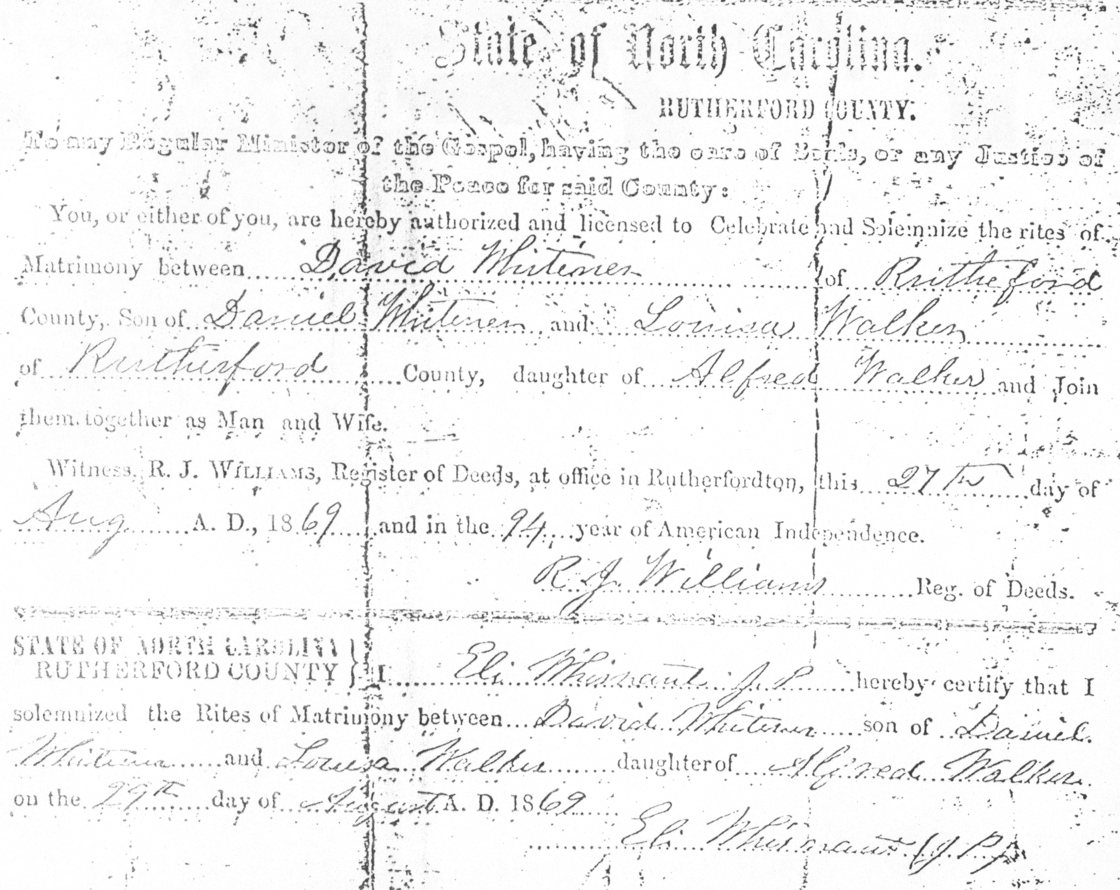 State of North Carolina.
RUTHERFORD COUNTY.
To any Regular Minister of the Gospel, having the care of Souls, or any Justice of
the Peace for said County:
You, or either of you, are hereby authorized and licensed to Celebrate and Solemnize the rites of
Matrimony between David Whitener of Rutherford
County, Son of Daniel Whitener and Louisa Walker
of Rutherford County, daughter of Alfred Walker and Join
them together as Man and Wife.
Witness, R. J. WILLIAMS, Register of Deeds, at office in Rutherfordton, this 27th day of
Aug A. D., 1869 and in the 94 year of American Independence.
R. J. Williams Reg. of Deeds.
STATE OF NORTH CAROLINA
RUTHERFORD COUNTY } I Eli Whisnant J. P. hereby certify that I
solemnized the Rites of Matrimony between David Whitener son of Daniel
Whitener and Louisa Walker daughter of Alfred Walker
on the 29th day of August A. D. 1869
Eli Whisnant (J. P.)